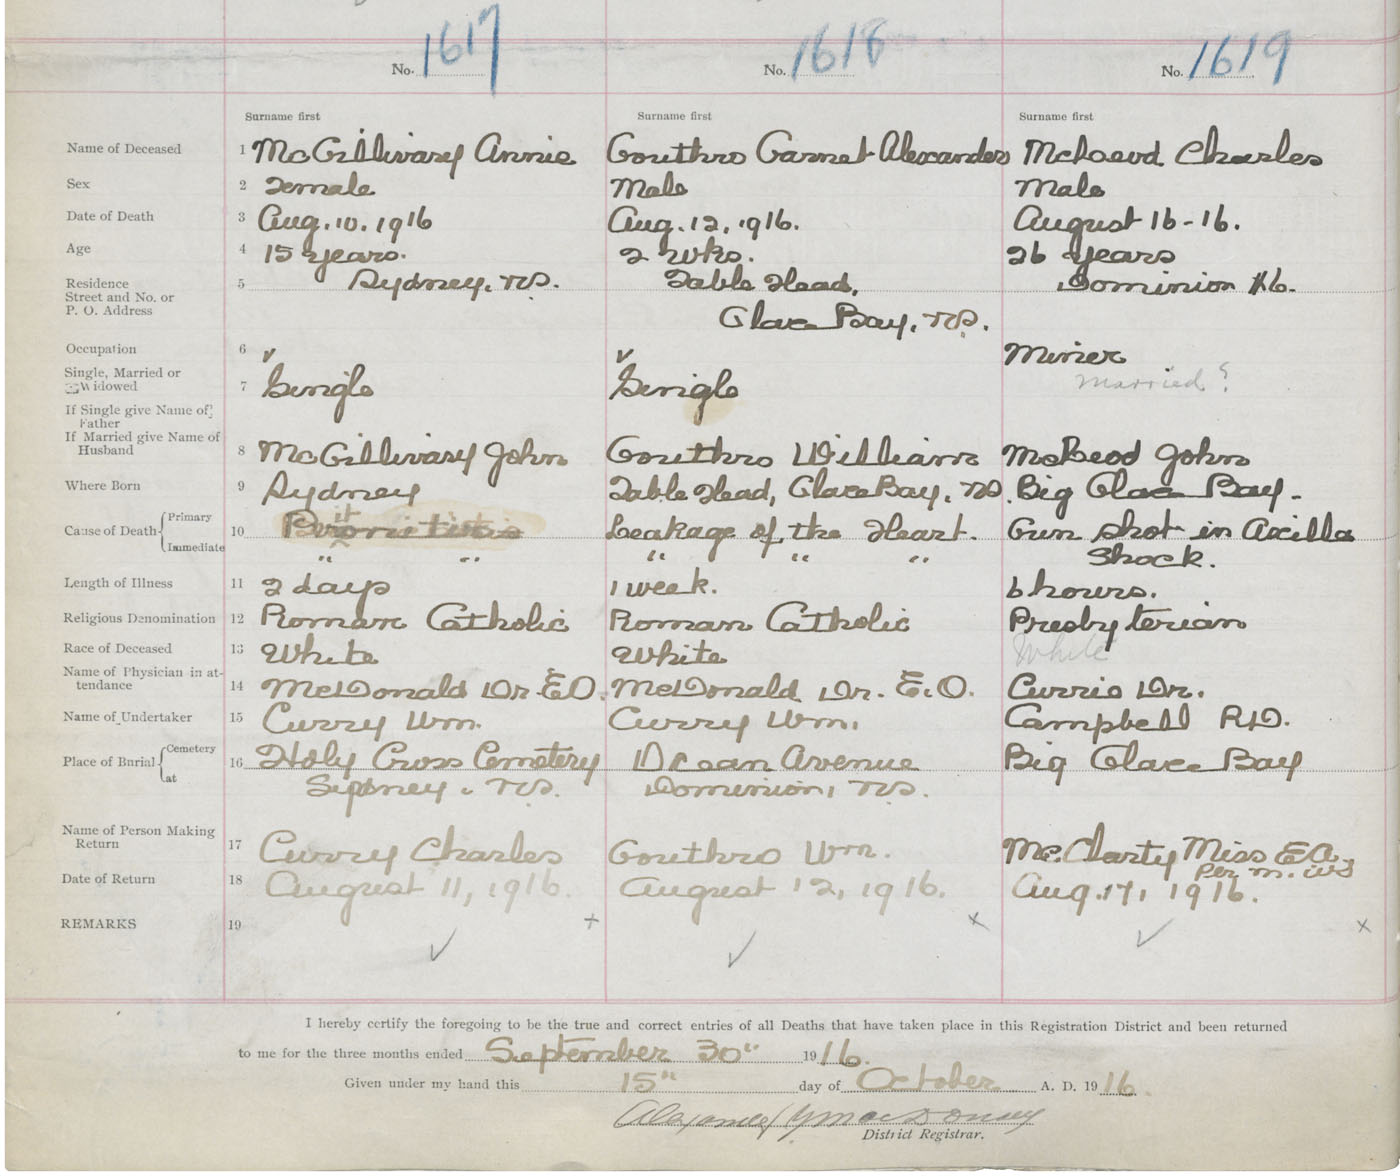 No. 1617 No. 1618 No. 1619
Surname first Surname first Surname first
Name of Deceased 1 McGillivary Annie Gouthro Garnet Alexander McLeod Charles
Sex 2 Female Male Male
Date of Death 3 Aug. 10. 1916 Aug. 12, 1916. August 16-16.
Age 4 15 years. 2 wks. 26 years
Residence 5 Sydney, N.S. Table Head, Dominion #6.
Street and No. or
P. O. Address Glace Bay, N.S.
Occupation 6 Miner
Single, Married or
Widowed 7 Single Single Married?
If Single give Name of
Father
If Married give Name of
Husband 8 McGillivary John Gouthro William McLeod John
Where Born 9 Sydney Table Head, Glace Bay, N.S. Big Glace Bay.
Cause of Death Primary 10 Leakage of the Heart. Gun shot in Axilla
Immediate " " " " " Shock.
Length of Illness 11 2 days 1 week. 6 hours.
Religious Denomination 12 Roman Catholic Roman Catholic Presbyterian
Race of Deceased 13 White White White
Name of Physician in at-
tendance 14 McDonald Dr. E.O. McDonald Dr. E.O. Currie Dr.
Name of Undertaker 15 Curry Wm. Curry Wm. Campbell R.D.
Place of Burial Cemetery 16 Holy Cross Cemetery Avenue Big Glace Bay
at Sydney, N.S. Dominion, N.S.
Name of Person Making
Return 17 Curry Charles Gouthro Wm. Mc.Clarty Miss E A,
Per M. W
Date of Return 18 August 11, 1916. August 12, 1916. Aug. 17, 1916.
REMARKS 19 x x x
I hereby certify the foregoing to be the true and correct entries of all Deaths that have taken place in this Registration District and been returned
to me for the three months ended September 30" 1916.
Given under my hand this 15" day of October A. D. 1916
Alexander
District Registrar.